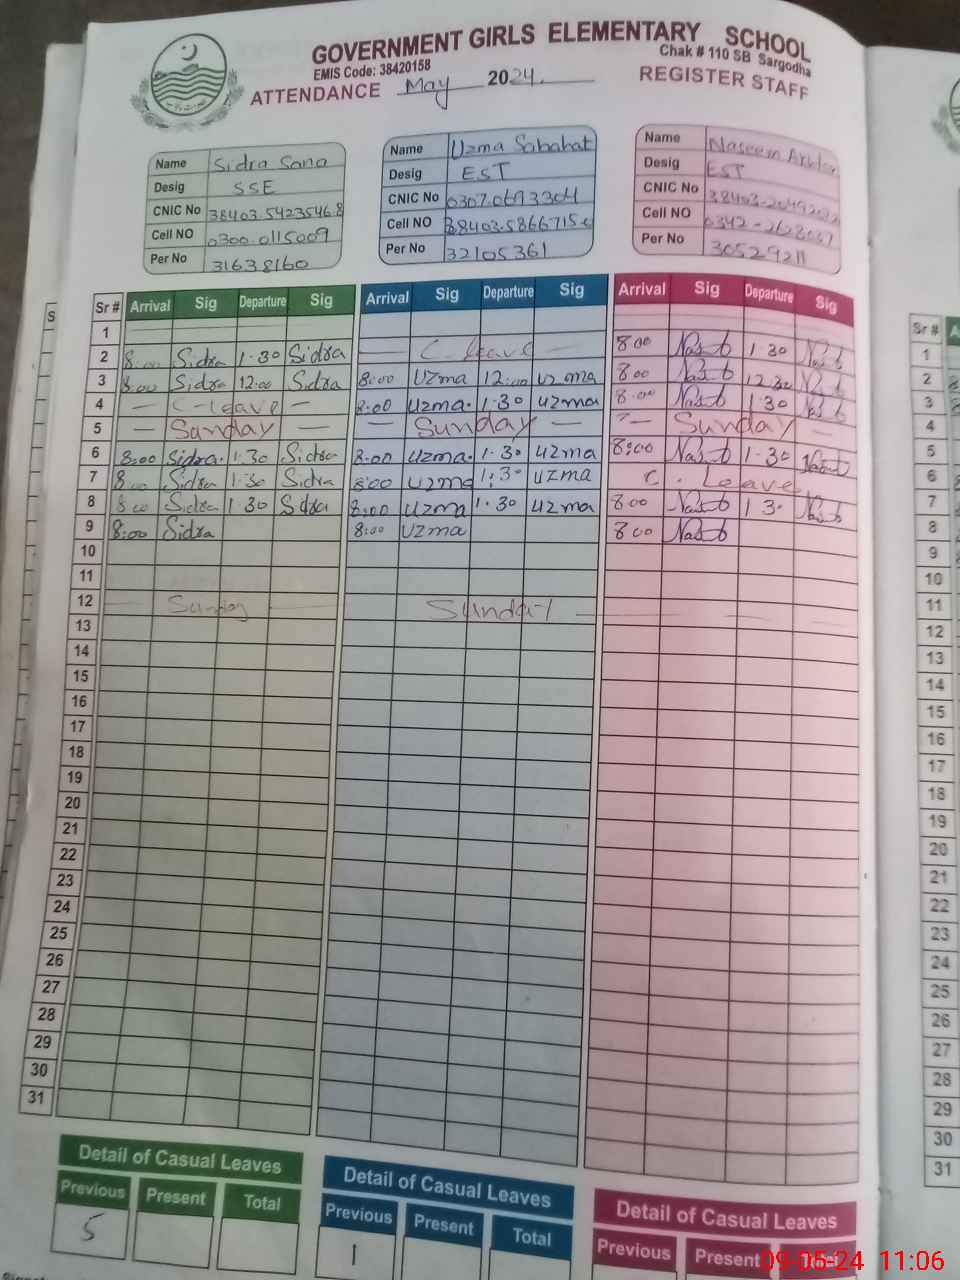 GOVERNMENT GIRLS ELEMENTARY SCHOOL
EMIS Code: 38420158
Chak # 110 SB Sargodha
ATTENDANCE May 2024. REGISTER STAFF
Name Sidra Sana
Desig SSE
CNIC No 38403.5423546.8
Cell NO 0300.0115009
Per No 31638160
Name Uzma Sabahat
Desig EST
CNIC No 0307.0693304
Cell NO 38403.5866715.0
Per No 32105361
Name Naseem Akhtar
Desig EST
CNIC No 38403-2049202
Cell NO 0342-2628037
Per No 30529211
Sr # Arrival Sig Departure Sig Arrival Sig Departure Sig Arrival Sig Departure Sig
1
2 8:00 Sidra 1.30 Sidra — C leave — 8 00 1 30
3 8:00 Sidra 12:00 Sidra 8:00 Uzma 12:00 uzma 8 00 12 30
4 — C-leave — 8:00 Uzma. 1.30 uzma 8.00 1 30
5 — Sunday — — Sunday — — Sunday —
6 8:00 Sidra. 1:30 Sidra 8:00 Uzma. 1.30 uzma 8:00 1.30
7 8:00 Sidra 1.30 Sidra 8:00 Uzma 1:30 uzma C. Leave
8 8:00 Sidra 1 30 Sidra 8:00 Uzma 1.30 uzma 8 00 1 30
9 8:00 Sidra 8:00 Uzma 8 00
10
11
12 — Sunday — Sunday —
13
14
15
16
17
18
19
20
21
22
23
24
25
26
27
28
29
30
31
Detail of Casual Leaves
Previous Present Total
5
Detail of Casual Leaves
Previous Present Total
1
Detail of Casual Leaves
Previous Present Total
Sr #
1
2
3
4
5
6
7
8
9
10
11
12
13
14
15
16
17
18
19
20
21
22
23
24
25
26
27
28
29
30
31
09-05-24 11:06